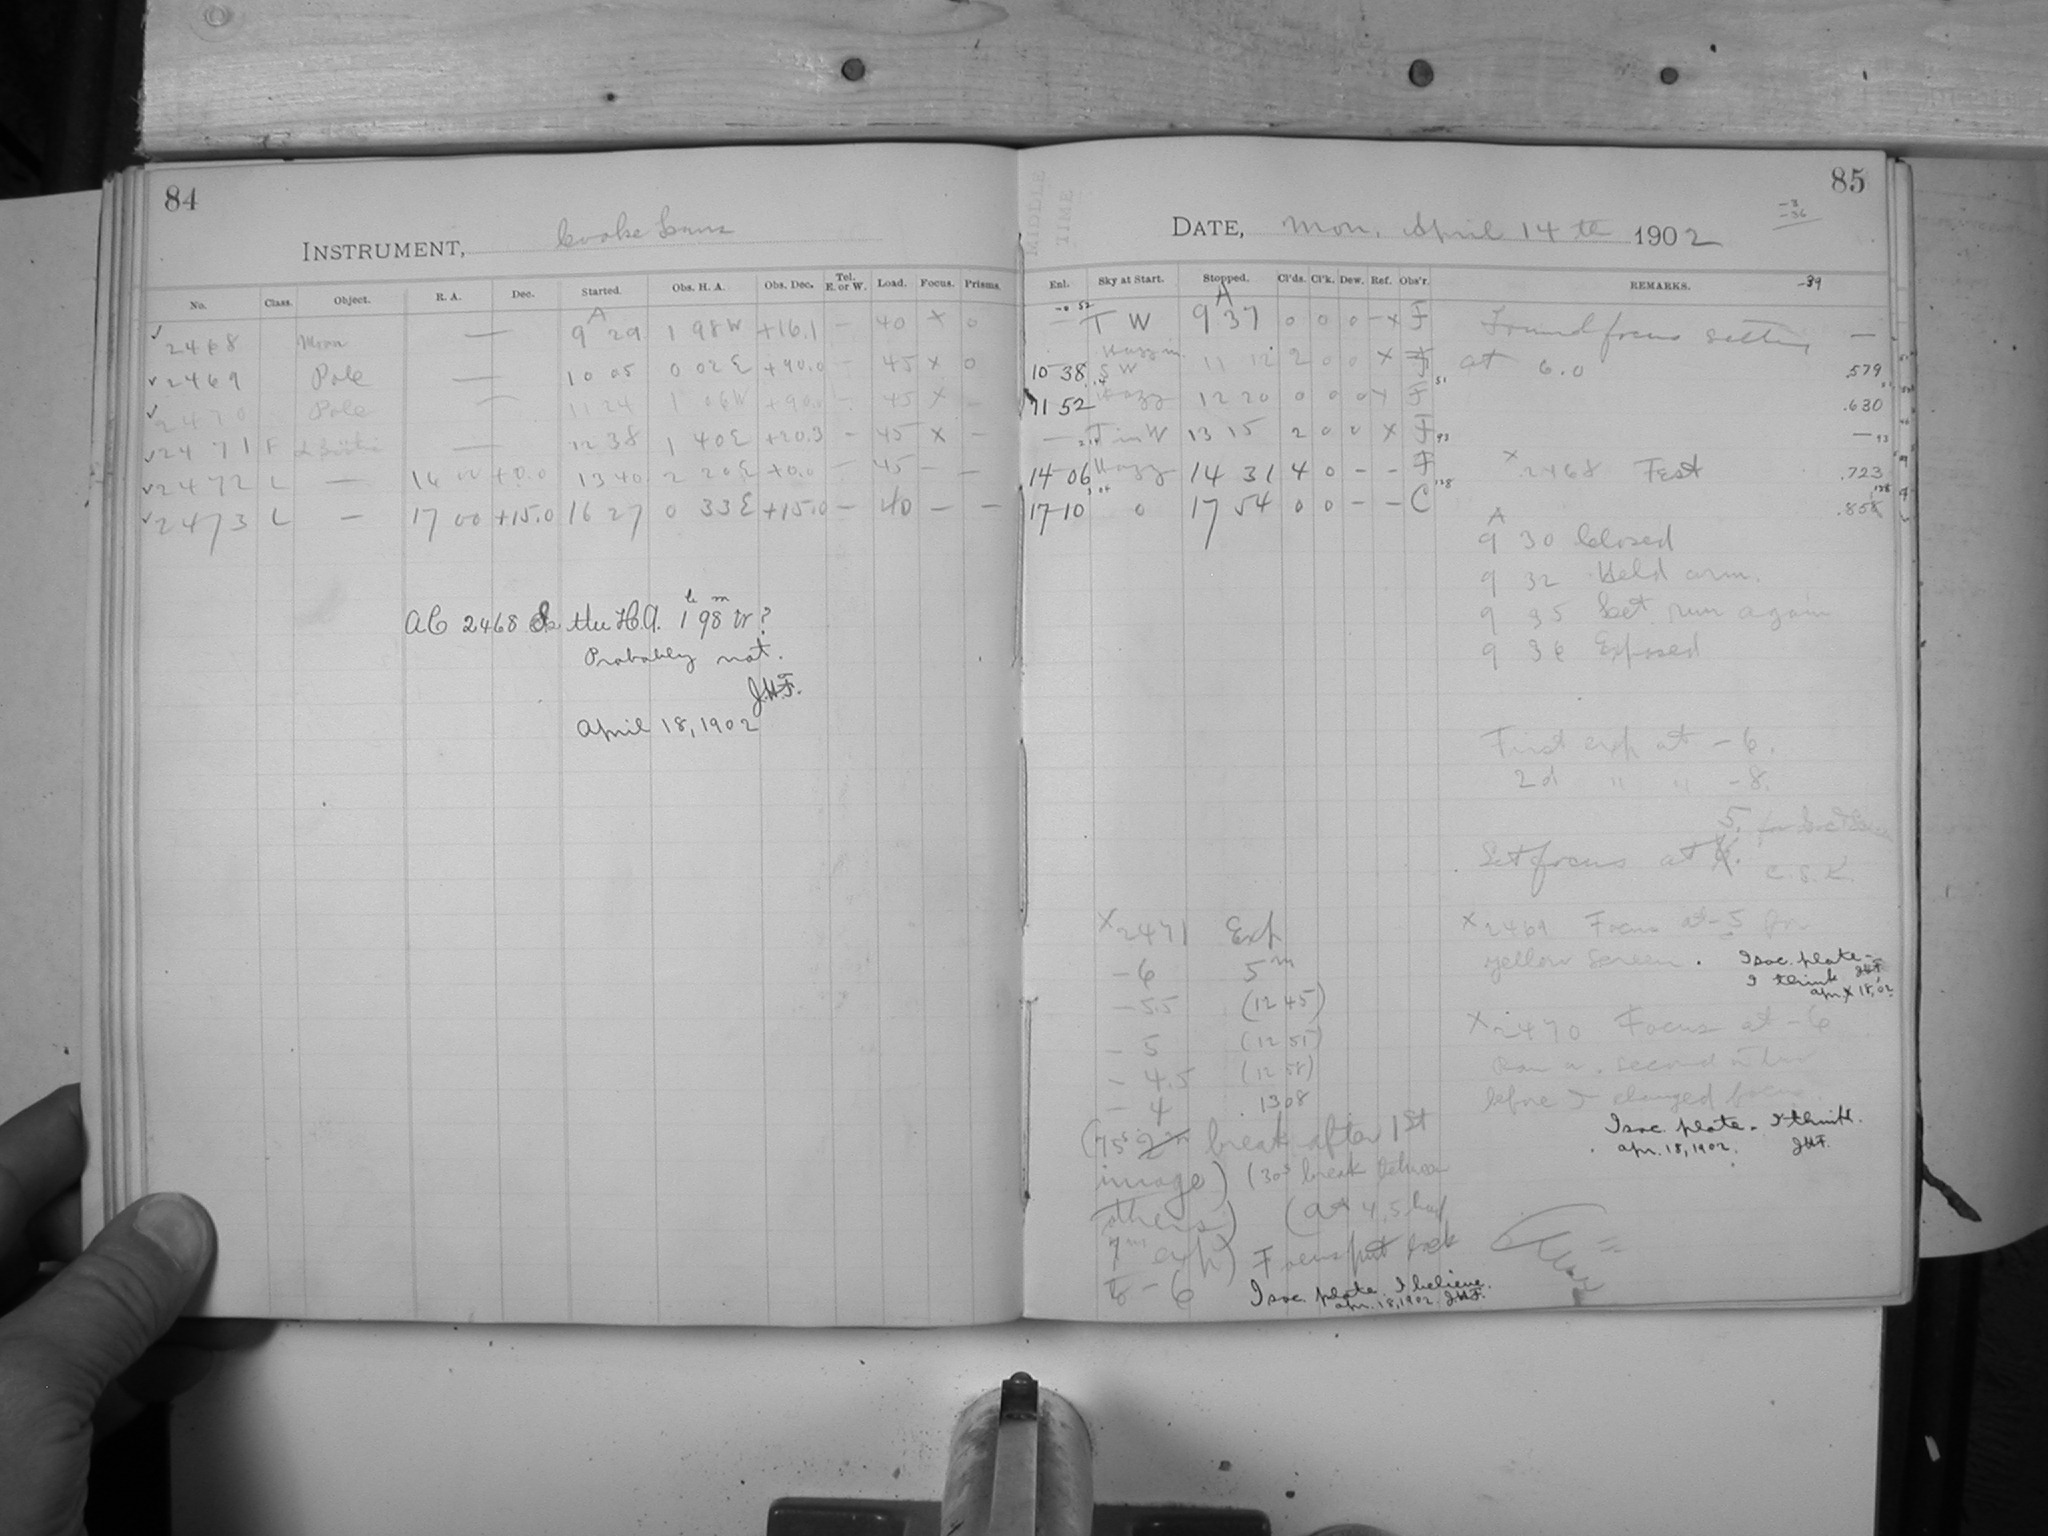 84
INSTRUMENT, Cooke Lens
No. Class. Object. R. A. Dec. Started. Obs. H. A. Obs. Dec. Tel. E. or W. Load. Focus. Prisms.
✓ 2468 Moon — 9 A 29 1 98 W +16.1 — 40 × 0
✓ 2469 Pole — 10 05 0 02 E +90.0 — 45 × 0
✓ 2470 Pole — 11 24 1 06 W +90.0 — 45 × —
✓ 2471 F — 12 38 1 40 E +20.3 — 45 × —
✓ 2472 L — 16 00 +0.0 13 40 2 20 E +0.0 — 45 — —
✓ 2473 L — 17 00 +15.0 16 27 0 33 E +15.0 — 40 — —
AC 2468 Is the H.A. 1h 98m W?
Probably not.
J.H.F.
April 18, 1902
MIDDLE
TIME
85
DATE, Mon. April 14th 1902
-3
-36
-39
Enl. Sky at Start. Stopped. Cl'ds. Cl'k. Dew. Ref. Obs'r. REMARKS.
— T W 9 A 37 0 0 0 — × F
10 38 S W 11 12 2 0 0 × F .579
11 52 Hazy 12 20 0 0 0 × F .630
— T in W 13 15 2 0 0 × F —
14 06 Hazy 14 31 4 0 — — F .723
17 10 0 17 54 0 0 — — C
Found focus setting
at 6.0
× 2468 Test
A
9 30 Closed
9 32 Held arm.
9 35 Set run again
9 36 Exposed
First exp at -6.
2d " " -8.
5. for
Set focus at
E.S.K.
× 2469 Focus at -5 for
yellow screen. Isoc. plate -
I think J.H.F.
Apr. 18, 02
× 2470 Focus at -6
Ran a second or two
before I changed focus.
Isoc. plate. I think.
Apr. 18, 1902. J.H.F.
× 2471 Exp
-6 5m
-5.5 (12 45)
-5 (12 51)
-4.5 (12 58)
-4 13 08
(75s break after 1st
image) (30s break between
others) (at 4.5 had
7m exp) Focus put back
to -6
Isoc. plate. I believe.
Apr. 18, 1902. J.H.F.